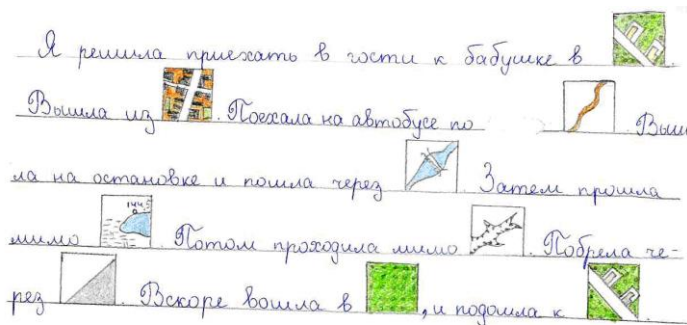 Я решила приехать в гости к бабушке в .
Вышла из . Поехала на автобусе по . Выш
ла на остановке и пошла через . Затем прошла
мимо 144 . Потом проходила мимо . Побрела че-
рез . Вскоре вошла в , и подошла к .